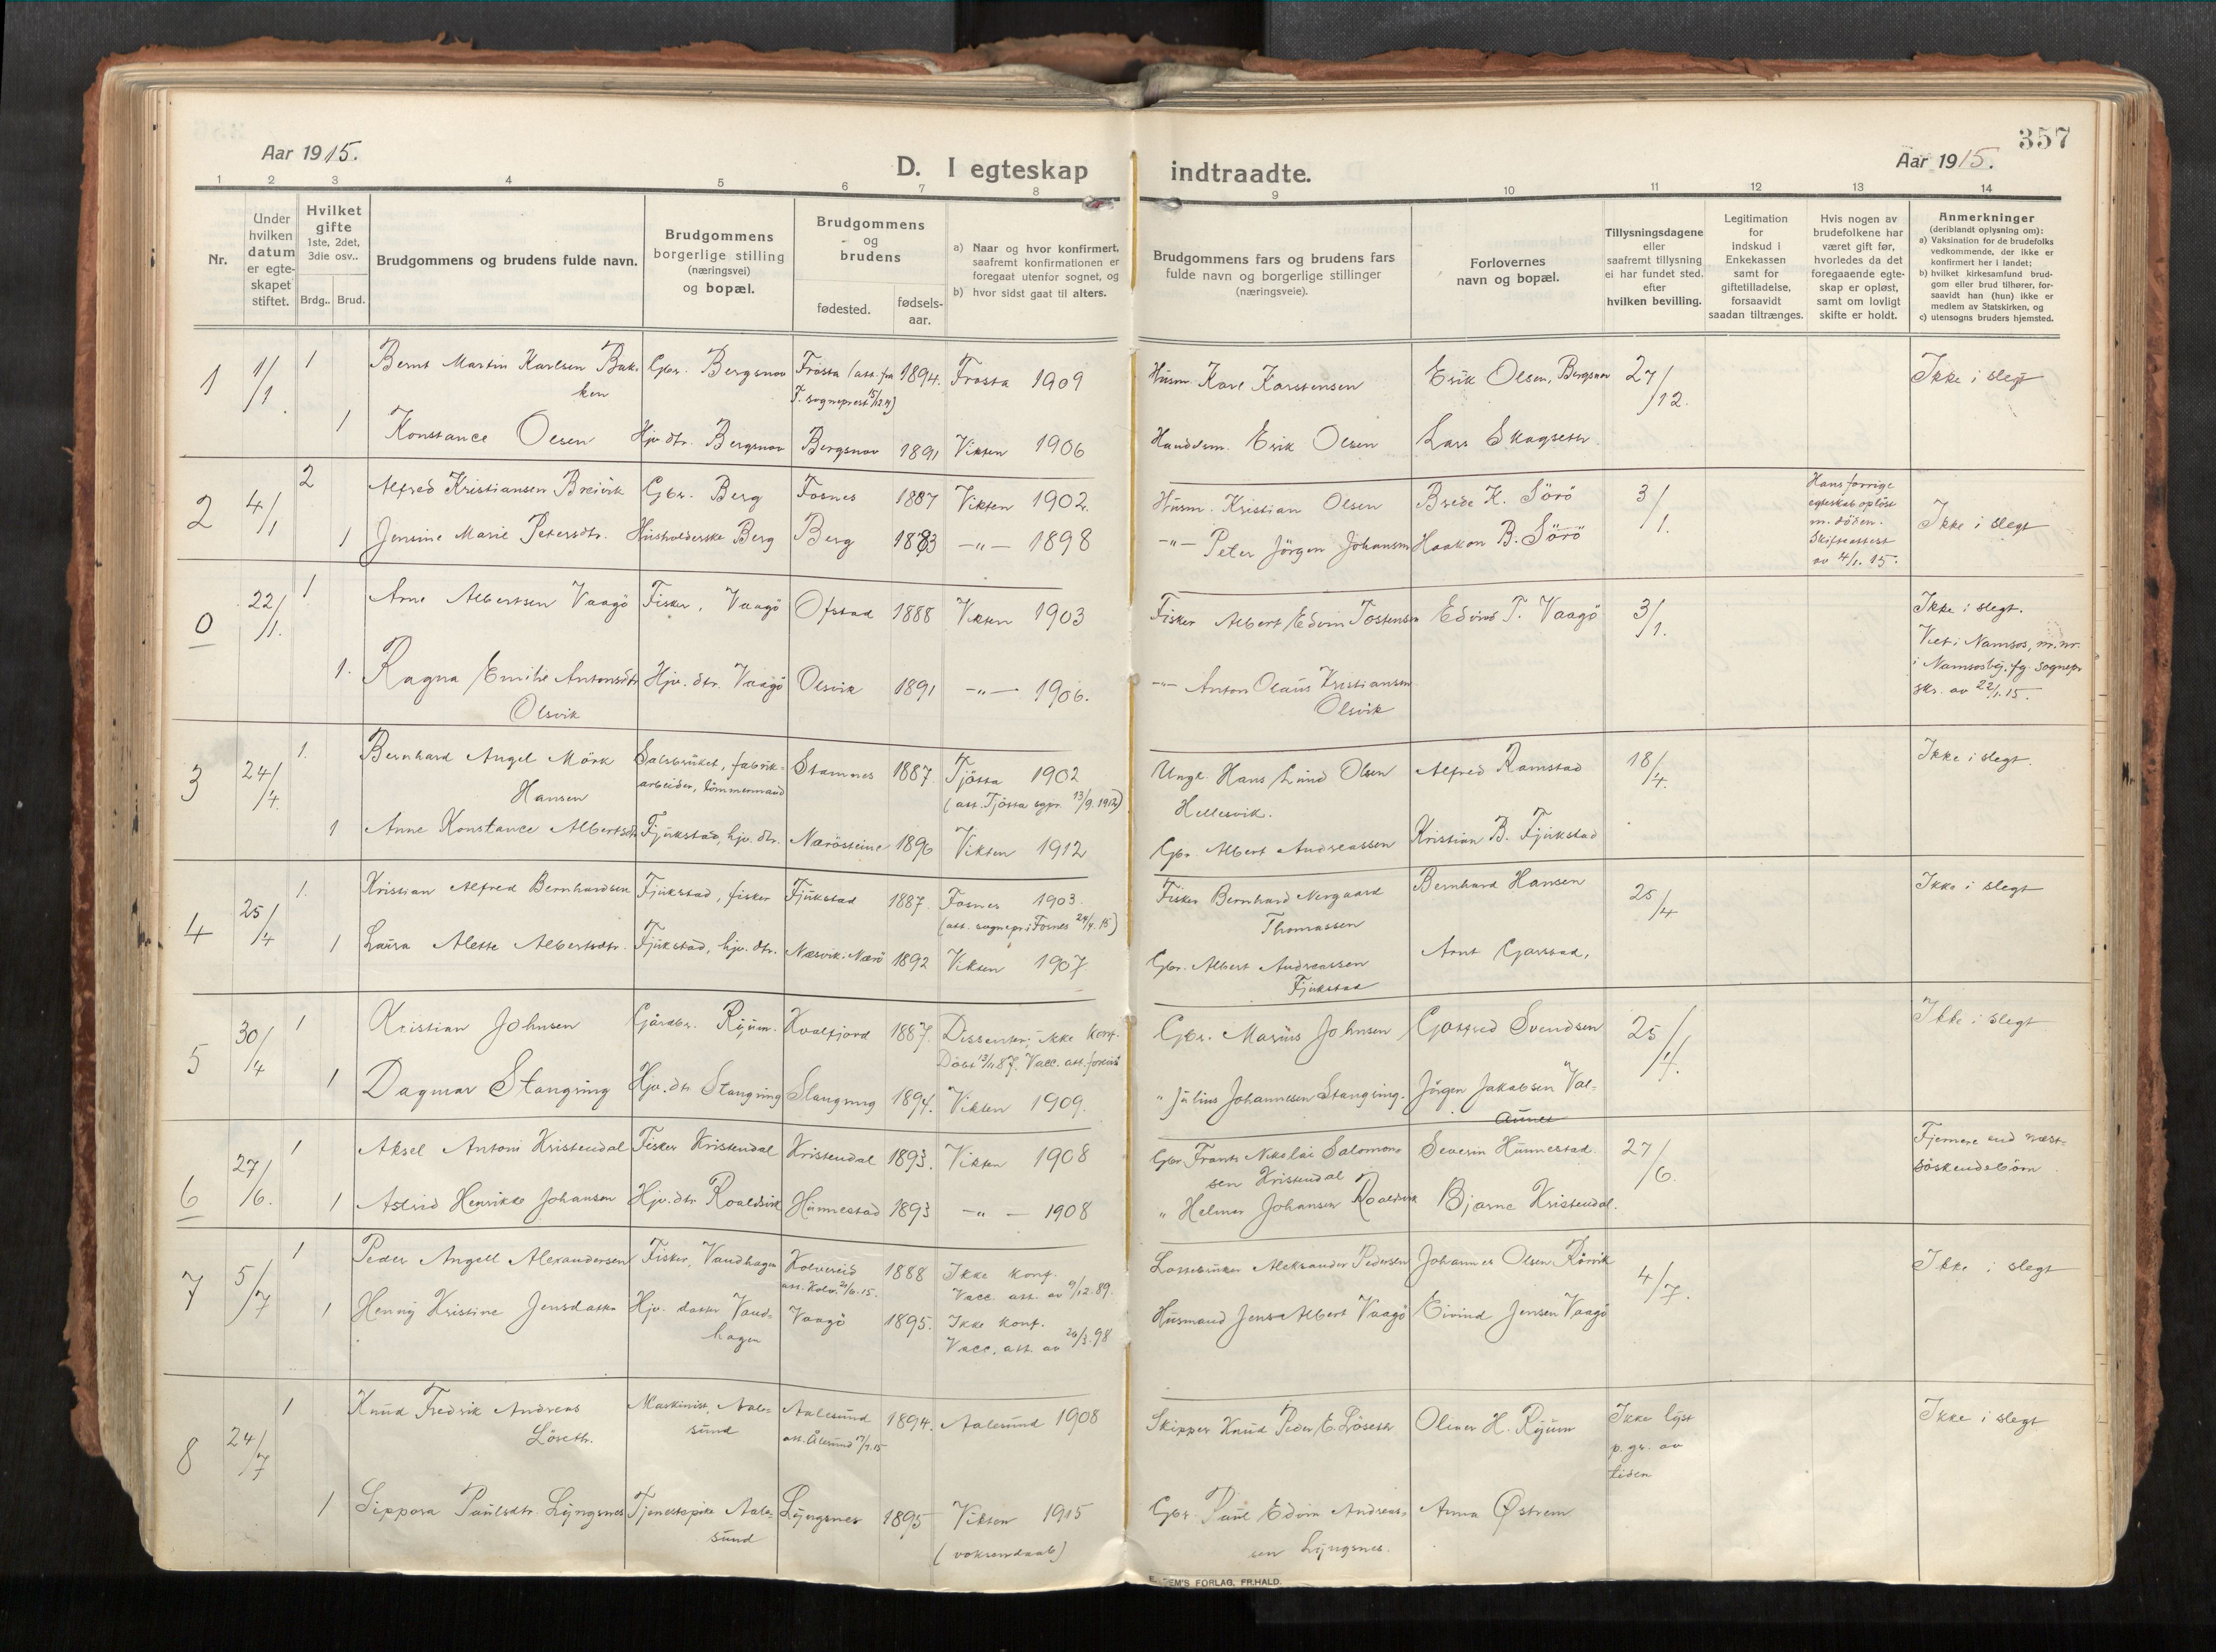 357
Aar 1915.
D. I egteskap indtraadte.
Aar 1915.
1 2 3 4 5 6 7 8 9 10 11 12 13 14
Nr.
Under
hvilken
datum
er egte-
skapet
stiftet.
Hvilket
gifte
1ste, 2det,
3die osv..
Brdg.. Brud.
Brudgommens og brudens fulde navn.
Brudgommens
borgerlige stilling
(næringsvei)
og bopæl.
Brudgommens
og
brudens
fødested.
fødsels-
aar.
a) Naar og hvor konfirmert,
saafremt konfirmationen er
foregaat utenfor sognet, og
b) hvor sidst gaat til alters.
Brudgommens fars og brudens fars
fulde navn og borgerlige stillinger
(næringsveie).
Forlovernes
navn og bopæl.
Tillysningsdagene
eller
saafremt tillysning
ei har fundet sted,
efter
hvilken bevilling.
Legitimation
for
indskud i
Enkekassen
samt for
giftetilladelse,
forsaavidt
saadan tiltrænges.
Hvis nogen av
brudefolkene har
været gift før,
hvorledes da det
foregaaende egte-
skap er opløst,
samt om lovligt
skifte er holdt.
Anmerkninger
(deriblandt oplysning om):
a) Vaksination for de brudefolks
vedkommende, der ikke er
konfirmert her i landet;
b) hvilket kirkesamfund brud-
gom eller brud tilhører, for-
saavidt han (hun) ikke er
medlem av Statskirken, og
c) utensogns bruders hjemsted.
1 1/1. 1 Bernt Martin Karlsen Bak- Gbr. Bergsnov Frosta (att. fra 1894. Frosta 1909 Husm. Karl Karstensen Erik Olsen, Bergsnov 27/12. Ikke i slegt
ken F. sogneprest 15/12 14)
1 Konstance Olsen Hjv. dtr. Bergsnov Bergsnov 1891 Vikten 1906 Handelsm. Erik Olsen Lars Skagseth
2 4/1 2 Alfred Kristiansen Breivik Gbr. Berg Fosnes 1887 Vikten 1902. Husm. Kristian Olsen Brede K. Sörö 3/1. Hans forrige
egteskab oplöst
m. döden.
Skifteattest
av 4/1. 15. Ikke i slegt
1 Jensine Marie Petersdtr. Husholderske Berg Berg 1883 -"- 1898 -"- Peter Jörgen Johansen Haakon B. Sörö
0 22/1. 1 Arne Albertsen Vaagö Fisker, Vaagö Ofstad 1888 Vikten 1903 Fisker Albert Edvin Tostensen Edvind T. Vaagö 3/1. Ikke i slegt.
Viet i Namsos, m. nr.
i Namsosbg. fg. sognepr
skr. av 22/1. 15.
1. Ragna Emilie Antonsdtr Hjv. dtr. Vaagö Olsvik 1891 -"- 1906. -"- Anton Olaus Kristiansen
Olsvik Olsvik
3 24/4. 1. Bernhard Angel Mörk Salsbruket, fabrik- Stamnes 1887. Tjötta 1902 Ungk. Hans Lund Olsen Alfred Ramstad 18/4. Ikke i slegt.
Hansen arbeider, tömmermand (att. Tjötta sgpr. 13/9. 1912) Hellesvik.
1 Anne Konstance Albertsdtr Fjukstad, hjv. dtr. Nærösteine 1896 Vikten 1912 Gbr. Albert Andreassen Kristian B. Fjukstad
4 25/4 1. Kristian Alfred Bernhardsen Fjukstad, fisker Fjukstad 1887. Fosnes 1903. Fisker Bernhard Nergaard Bernhard Hansen 25/4 Ikke i slegt
(att. sognepr. i Fosnes 24/4. 15) Thomassen
1 Laura Alette Albertsdtr. Fjukstad, hjv. dtr. Næsvik. Nærö 1892 Vikten 1907 Gbr. Albert Andreassen Arnt Garstad,
Fjukstad
5 30/4 1 Kristian Johnsen Gårdbr. Ryum. Kvalfjord 1887. Dissenter; ikke konf. Gbr. Marius Johnsen Gotfred Svendsen 25/4. Ikke i slegt
Döbt 13/11 87. Vacc. att. forevist
1 Dagmar Stangring Hjv. dtr Stangring Stangring 1894. Vikten 1909. " Julius Johannesen Stangring. Jörgen Jakobsen Val-
aunet
6 27/6. 1 Aksel Antoni Kristendal Fisker Kristendal Kristendal 1893. Vikten 1908 Gbr. Frants Nikolai Salomon- Severin Hunnestad 27/6. Fjernere end næst-
sen Kristendal söskendebörn
1 Astrid Henrikke Johansen Hjv. dtr Roaldsvik Hunnestad 1893 -"- 1908 " Helmer Johansen Roaldsvik Bjarne Kristendal.
7 5/7 1 Peder Angell Alexandersen Fisker, Vandhagen Kolvereid 1888 Ikke konf. Losseb­ruker Aleksander Pedersen Johannes Olsen Rörvik 4/7. Ikke i slegt
att. Kolv. 21/6. 15. Vacc. att. av 9/12. 89.
1 Henny Kristine Jensdatter Hjv. datter Vand- Vaagö 1895. Ikke konf. Husmand Jens Albert Vaagö Eivind Jensen Vaagö
hagen Vacc. att. av 26/3. 98
8 24/7 1 Knud Fredrik Andreas Maskinist, Aale- Aalesund 1894. Aalesund 1908 Skipper Knud Peder E. Löseth Oliver H. Ryum Ikke lyst
p. gr. av
tiden Ikke i slegt
Löseth. sund att. Ålesund 17/7. 15
1 Sippora Paulsdtr. Lyngsnes Tjenestepike Aale- Lyngsnes 1895 Vikten 1915 Gbr. Paul Edvin Andreas- Anna Østrem
sund (voksendaab) sen Lyngsnes.
EM'S FORLAG, FR.HALD.